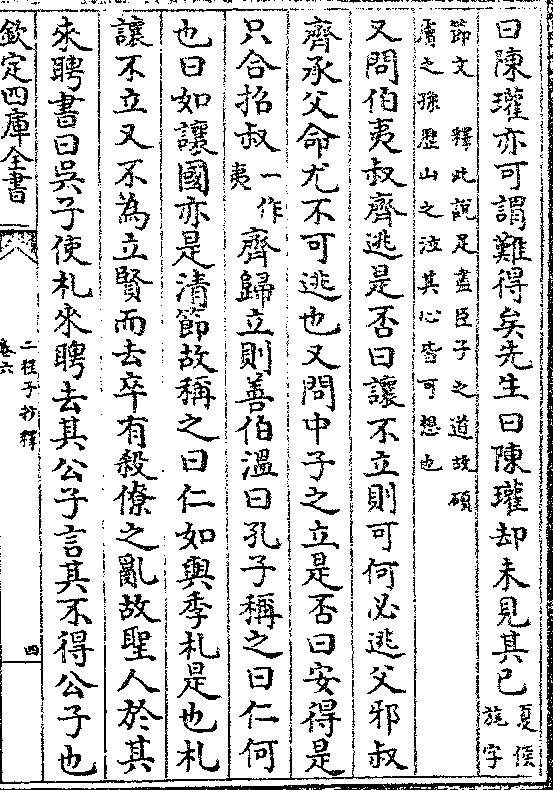 曰陳瓘亦可謂難得矣先生曰陳瓘却未見其已夏侯旄字
節文　釋此說足盡臣子之道故碩
膚之孫歷山之泣其心皆可想也
又問伯夷叔齊逃是否曰讓不立則可何必逃父邪叔
齊承父命尤不可逃也又問中子之立是否曰安得是
只合招叔一作夷齊歸立則善伯溫曰孔子稱之曰仁何
也曰如讓國亦是清節故稱之曰仁如與季札是也札
讓不立又不為立賢而去卒有殺僚之亂故聖人於其
來聘書曰吳子使札來聘去其公子言其不得公子也
欽定四庫全書
二程子抄釋
卷六
四